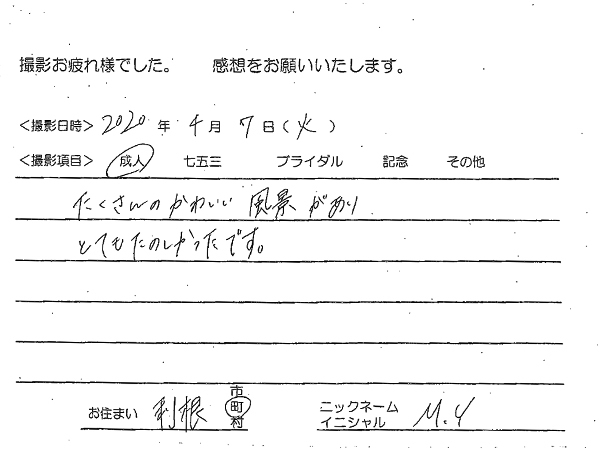 撮影お疲れ様でした。 感想をお願いいたします。
<撮影日時> 2020 年 4 月 7 日(火)
<撮影項目> 成人 七五三 ブライダル 記念 その他
たくさんのかわいい 風景があり
とてもたのしかったです。
お住まい 利根 市町村 ニックネーム イニシャル M.Y